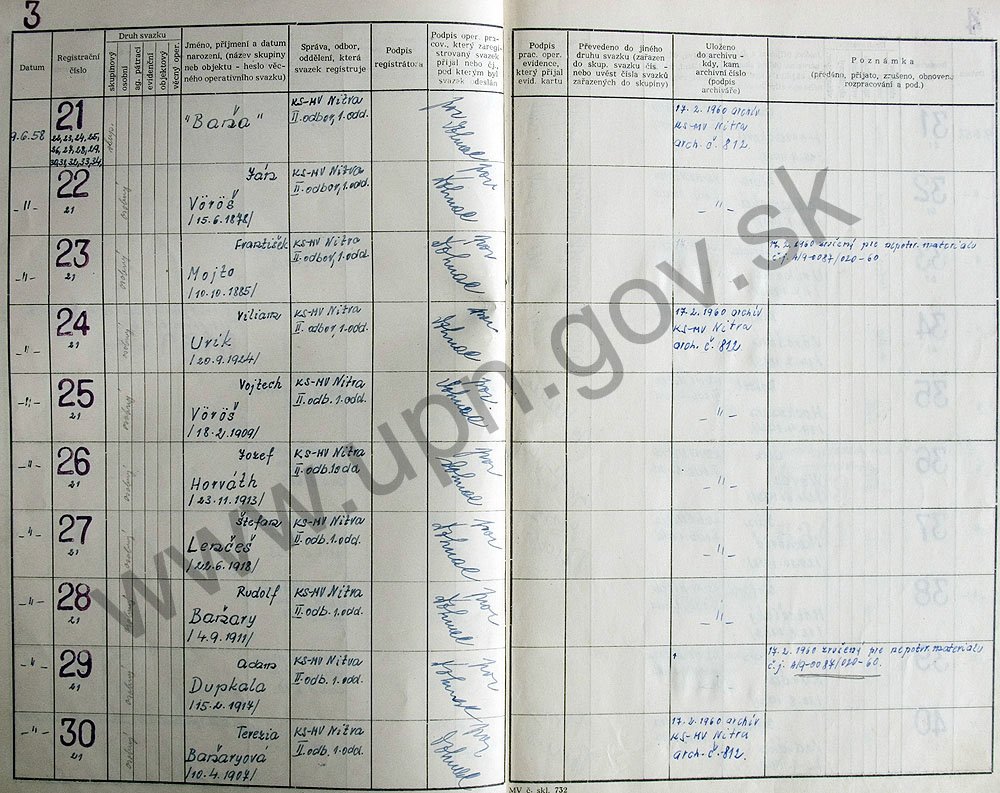 3
Datum
Registrační číslo
Druh svazku
skupinový
osobní
ag. pátrací
evidenční
objektový
věcný oper.
Jméno, příjmení a datum
narození, (název skupiny
neb objektu - heslo věc-
ného operativního svazku)
Správa, odbor,
oddělení, která
svazek registruje
Podpis
registrátora
Podpis oper. pra-
cov., který zaregi-
strovaný svazek
přijal nebo čj.,
pod kterým byl
svazek odeslán
Podpis
prac. oper.
evidence,
který přijal
evid. kartu
Převedeno do jiného
druhu svazku (zařazen
do skup. svazku čís. -
nebo uvést čísla svazků
zařazených do skupiny)
Uloženo
do archivu -
kdy, kam
archivní číslo
(podpis
archiváře)
Poznámka
(předáno, přijato, zrušeno, obnoveno
rozpracování a pod.)
9.6.58
21
22, 23, 24, 25,
26, 27, 28, 29,
30, 31, 32, 33, 34,
"Barša"
KS-MV Nitra
II. odbor, 1. odd.
17. 2. 1960 archív
KS-MV Nitra
arch. č. 812
-"-
22
21
osobný
Ján
Vöröš
/15.6.1878/
KS-MV Nitra
II. odbor, 1. odd.
-"-
-"-
23
21
osobný
František
Mojto
/10.10.1885/
KS-MV Nitra
II. odbor, 1. odd.
17. 2. 1960 zručený pre nepotvr. materialu
č.j. A/9-0087/020-60
-"-
24
21
osobný
Viliam
Urik
/20.9.1924/
KS-MV Nitra
II. odbor, 1. odd.
17. 2. 1960 archív
KS-MV Nitra
arch. č. 812
-"-
25
21
osobný
Vojtech
Vöröš
/18.2.1909/
KS-MV Nitra
II. odb. 1. odd.
-"-
-"-
26
21
osobný
Jozef
Horváth
/23.11.1913/
KS-MV Nitra
II. odb. 1 odd
-"-
-"-
27
21
osobný
Štefan
Lenčéš
/22.6.1918/
KS-MV Nitra
II. odb. 1. odd.
-"-
-"-
28
21
osobný
Rudolf
Baršary
/4.9.1911/
KS-MV Nitra
II. odb. 1. odd.
-"-
-"-
29
21
osobný
Adam
Dupkala
/15.2.1917/
KS-MV Nitra
II. odb. 1. odd.
17. 2. 1960 zručený pre nepotvr. materialu
č.j. A/9-0087/020-60.
-"-
30
21
osobný
Terezia
Baršaryová
/10.4.1907/
KS-MV Nitra
II. odb. 1. odd.
17. 2. 1960 archív
KS-MV Nitra
arch. č. 812.
MV č. skl. 732
www.upn.gov.sk